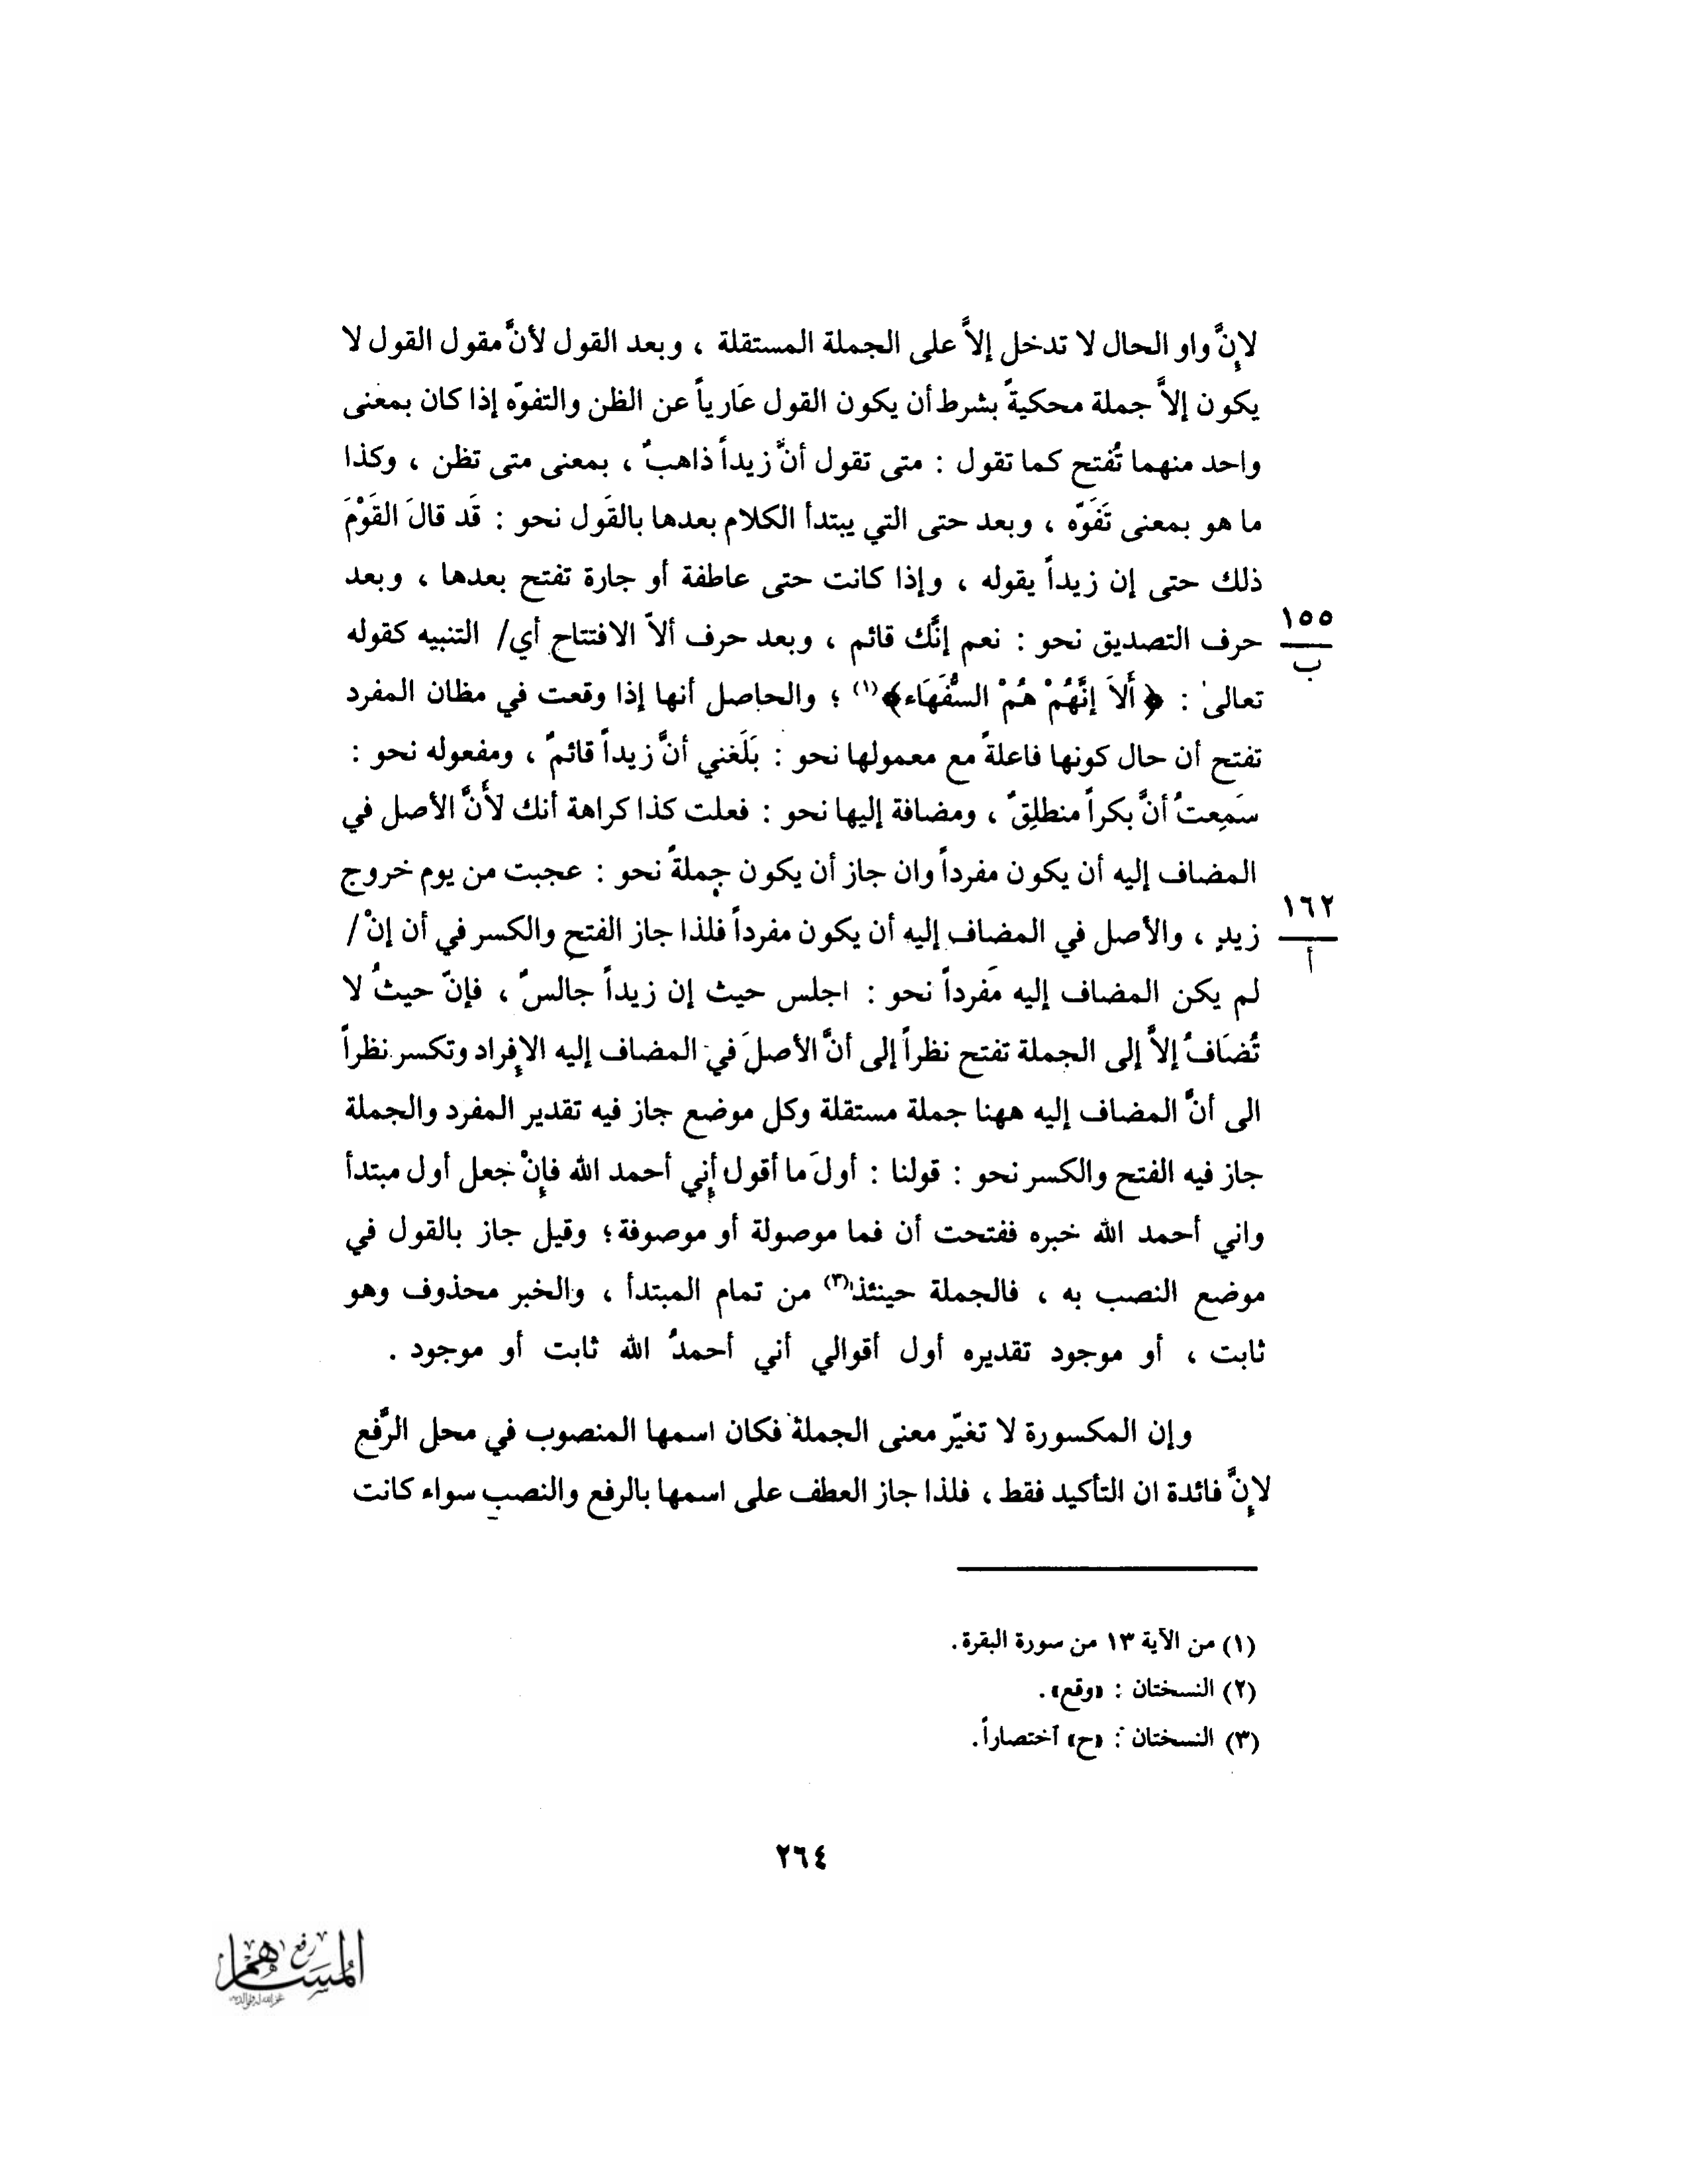 لإنَّ واو الحال لا تدخل إلاَّ على الجملة المستقلة ، وبعد القول لأنَّ مقول القول لا
يكون إلاَّ جملة محكيةً بشرط أن يكون القول عَارياً عن الظن والتفوّه إذا كان بمعنى
واحد منهما تُفتح كما تقول : متى تقول أنَّ زيداً ذاهبٌ ، بمعنى متى تظن ، وكذا
ما هو بمعنى تَفَوّه ، وبعد حتى التي يبتدأ الكلام بعدها بالقَول نحو : قَد قالَ القَوْمَ
ذلك حتى إن زيداً يقوله ، وإذا كانت حتى عاطفة أو جارة تفتح بعدها ، وبعد
١٥٥
ب
حرف التصديق نحو : نعم إنَّك قائم ، وبعد حرف ألاّ الافتتاح أي/ التنبيه كقوله
تعالىٰ : ﴿أَلاَ إنَّهُمْ هُمْ السُّفَهَاء﴾(١) ؛ والحاصل أنها إذا وقعت في مظان المفرد
تفتح أن حال كونها فاعلةً مع معمولها نحو : بَلَغني أنَّ زيداً قائمٌ ، ومفعوله نحو :
سَمِعتُ أنَّ بكراً منطلِقٌ ، ومضافة إليها نحو : فعلت كذا كراهة أنك لَأَنَّ الأصل في
المضاف إليه أن يكون مفرداً وان جاز أن يكون جملةً نحو : عجبت من يوم خروج
١٦٢
أ
زيدٍ ، والأصل في المضاف إليه أن يكون مفرداً فلذا جاز الفتح والكسر في أن إنْ /
لم يكن المضاف إليه مَفرداً نحو : اجلس حيث إن زيداً جَالسٌ ، فإنّ حيثُ لا
تُضَافُ إلاَّ إلى الجملة تفتح نظراً إلى أنَّ الأصلَ في المضاف إليه الإفراد وتكسر نظراً
الى أنَّ المضاف إليه ههنا جملة مستقلة وكل موضع جاز فيه تقدير المفرد والجملة
جاز فيه الفتح والكسر نحو : قولنا : أولَ ما أقول أإني أحمد الله فإنْ جعل أول مبتدأ
واني أحمد الله خبره ففتحت أن فما موصولة أو موصوفة؛ وقيل جاز بالقول في
موضع النصب به ، فالجملة حينئذ(٣) من تمام المبتدأ ، والخبر محذوف وهو
ثابت ، أو موجود تقديره أول أقوالي أني أحمدُ الله ثابت أو موجود .
وإن المكسورة لا تغيّر معنى الجملة فكان اسمها المنصوب في محل الرَّفع
لإنَّ فائدة ان التأكيد فقط ، فلذا جاز العطف على اسمها بالرفع والنصب سواء كانت
(١) من الآية ١٣ من سورة البقرة.
(٢) النسختان : «وقع».
(٣) النسختان : «ح» اختصاراً.
٢٦٤